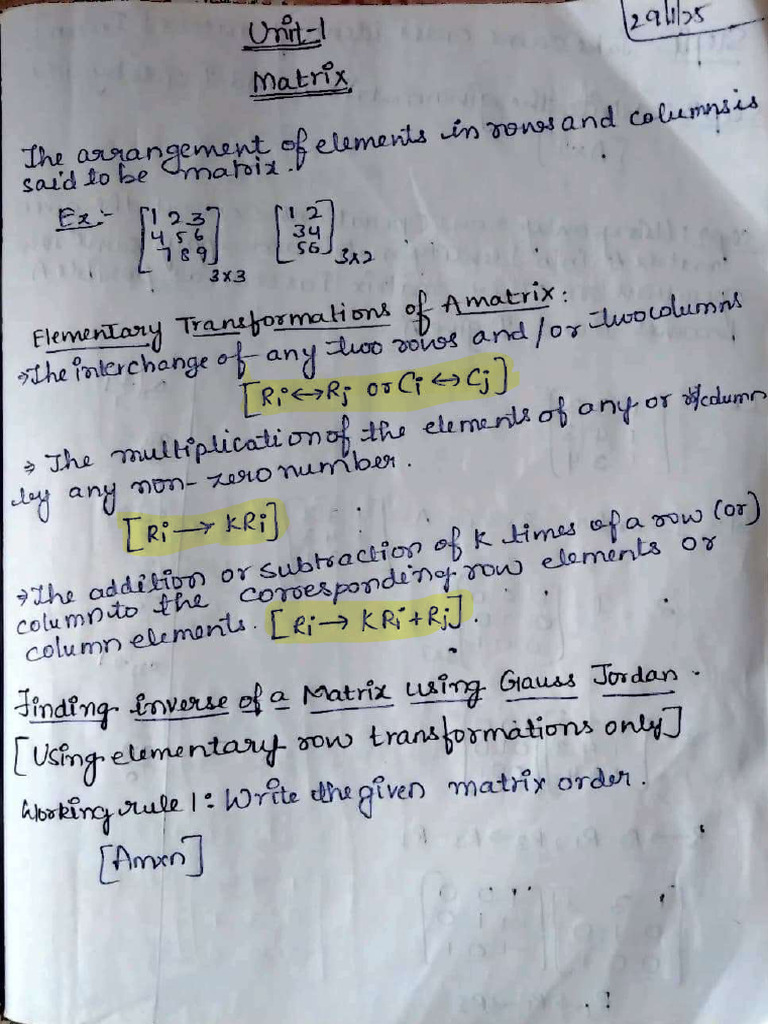 29/1/25
Unit-1
Matrix
The arrangement of elements in rows and columns is
said to be matrix.
Ex:- [1 2 3 [1 2
4 5 6 3 4
7 8 9] 3x3 5 6] 3x2
Elementary Transformations of A matrix:
→The interchange of any two rows and/or two columns
[Ri↔Rj or Ci↔Cj]
→ The multiplication of the elements of any or column
by any non-zero number.
[Ri→KRi]
→The addition or subtraction of K times of a row (or)
column to the corresponding row elements or
column elements. [Ri→KRi+Rj].
Finding inverse of a Matrix using Gauss Jordan.
[Using elementary row transformations only]
Working rule 1: Write the given matrix order.
[Amxn]